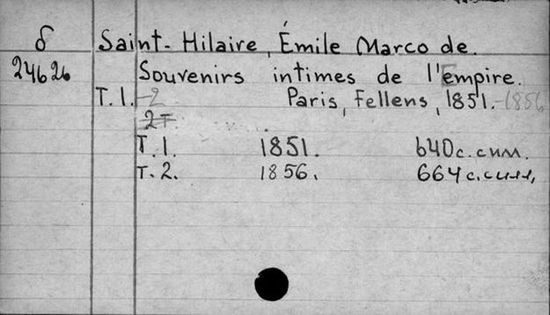 б Saint-Hilaire, Émile Marco de.
24626 Souvenirs intimes de l'Empire.
T. 1.-2 Paris, Fellens, 1851.-1856
2т.
T. 1. 1851. 640 с. с илл.
T. 2. 1856. 664 с. с илл,